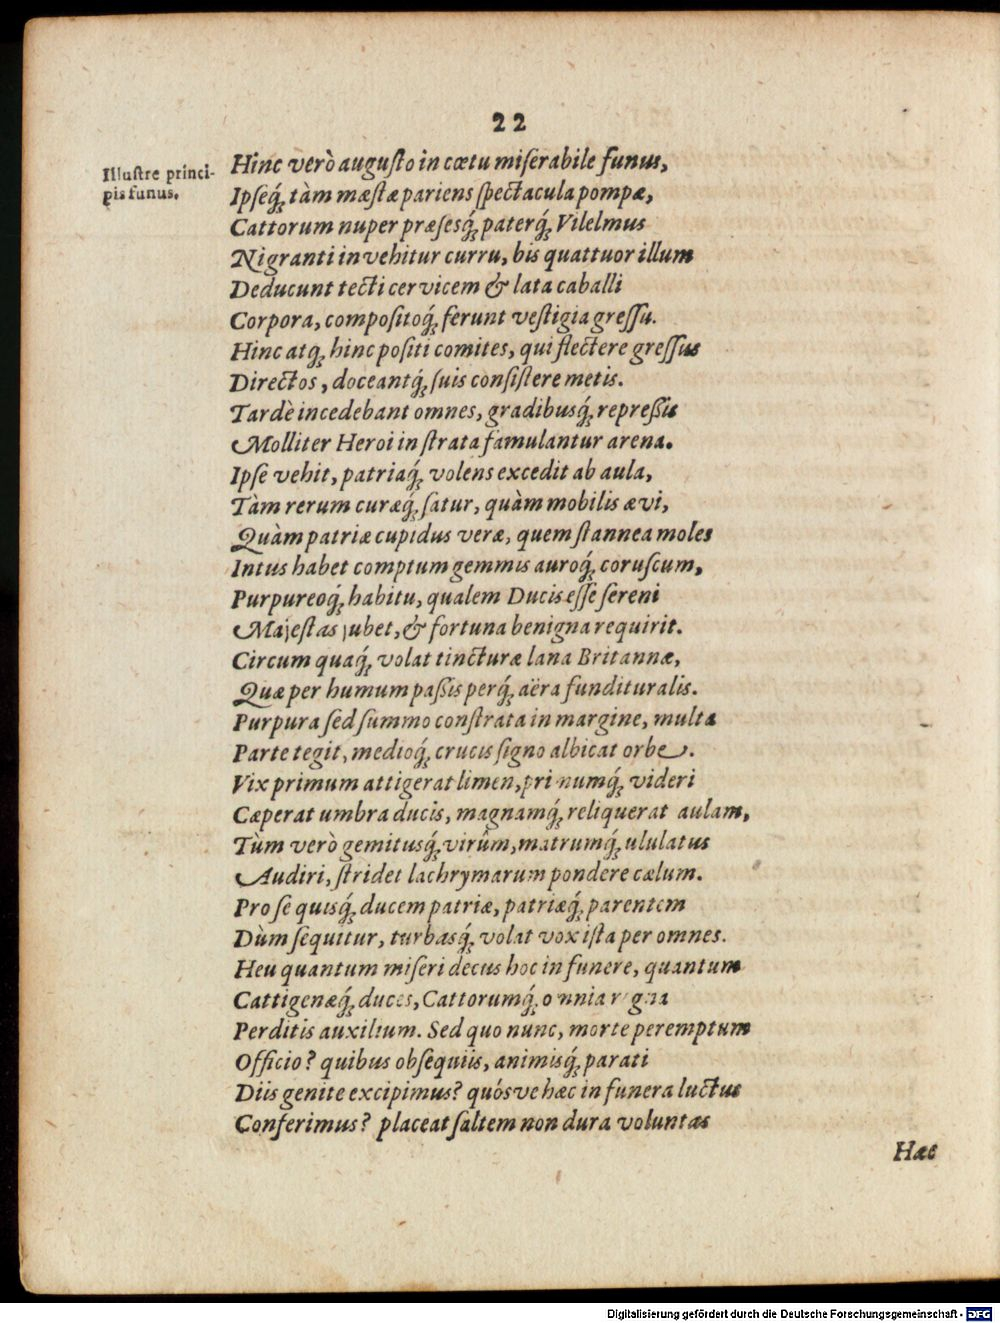 22
Illustre princi-
pis funus.
Hinc verò augusto in cœtu miserabile funus,
Ipseq́; tàm mæstæ pariens spectacula pompæ,
Cattorum nuper præsesq́; paterq́; Vilelmus
Nigranti invehitur curru, bis quattuor illum
Deducunt tecti cervicem & lata caballi
Corpora, compositoq́; ferunt vestigia gressu.
Hinc atq; hinc positi comites, qui flectere gressus
Directos, doceantq́; suis consistere metis.
Tardè incedebant omnes, gradibusq́; repreßis
Molliter Heroi in strata famulantur arena.
Ipse vehit, patriaq́; volens excedit ab aula,
Tàm rerum curæq́; satur, quàm mobilis ævi,
Quàm patriæ cupidus veræ, quem stannea moles
Intus habet comptum gemmis auroq́; coruscum,
Purpureoq́; habitu, qualem Ducis esse sereni
Majestas jubet, & fortuna benigna requirit.
Circum quaq́; volat tincturæ lana Britannæ,
Quæ per humum paßis perq́; aëra funditur alis.
Purpura sed summo constrata in margine, multa
Parte tegit, medioq́; crucis signo albicat orbe.
Vix primum attigerat limen, primumq́; videri
Cæperat umbra ducis, magnamq́; reliquerat aulam,
Tùm verò gemitusq́; virûm, matrumq́; ululatus
Audiri, stridet lachrymarum pondere cælum.
Pro se quisq́; ducem patriæ, patriæq́; parentem
Dùm sequitur, turbasq́; volat vox ista per omnes.
Heu quantum miseri decus hoc in funere, quantum
Cattigenæq́; duces, Cattorumq́; omnia regna
Perditis auxilium. Sed quo nunc, morte peremptum
Officio? quibus obsequiis, animisq́; parati
Diis genite excipimus? quósve hæc in funera luctus
Conferimus? placeat saltem non dura voluntas
Hæc
Digitalisierung gefördert durch die Deutsche Forschungsgemeinschaft - DFG